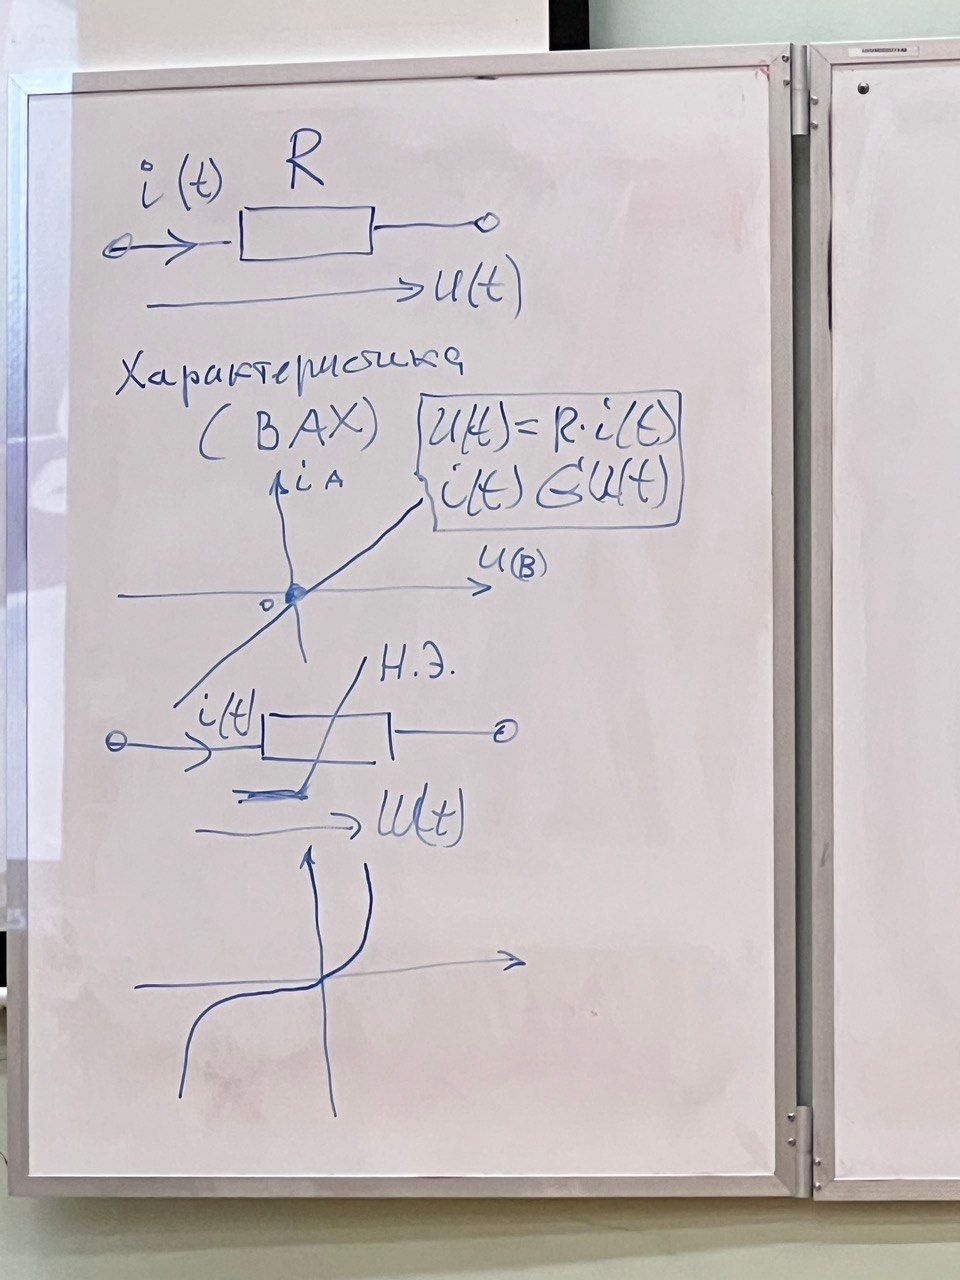 R
i(t)
u(t)
Характеристика
(ВАХ)
u(t) = R·i(t)
i(t) G u(t)
i A
u(B)
0
Н.Э.
i(t)
u(t)